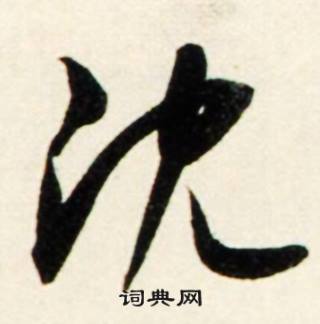 沈
词典网